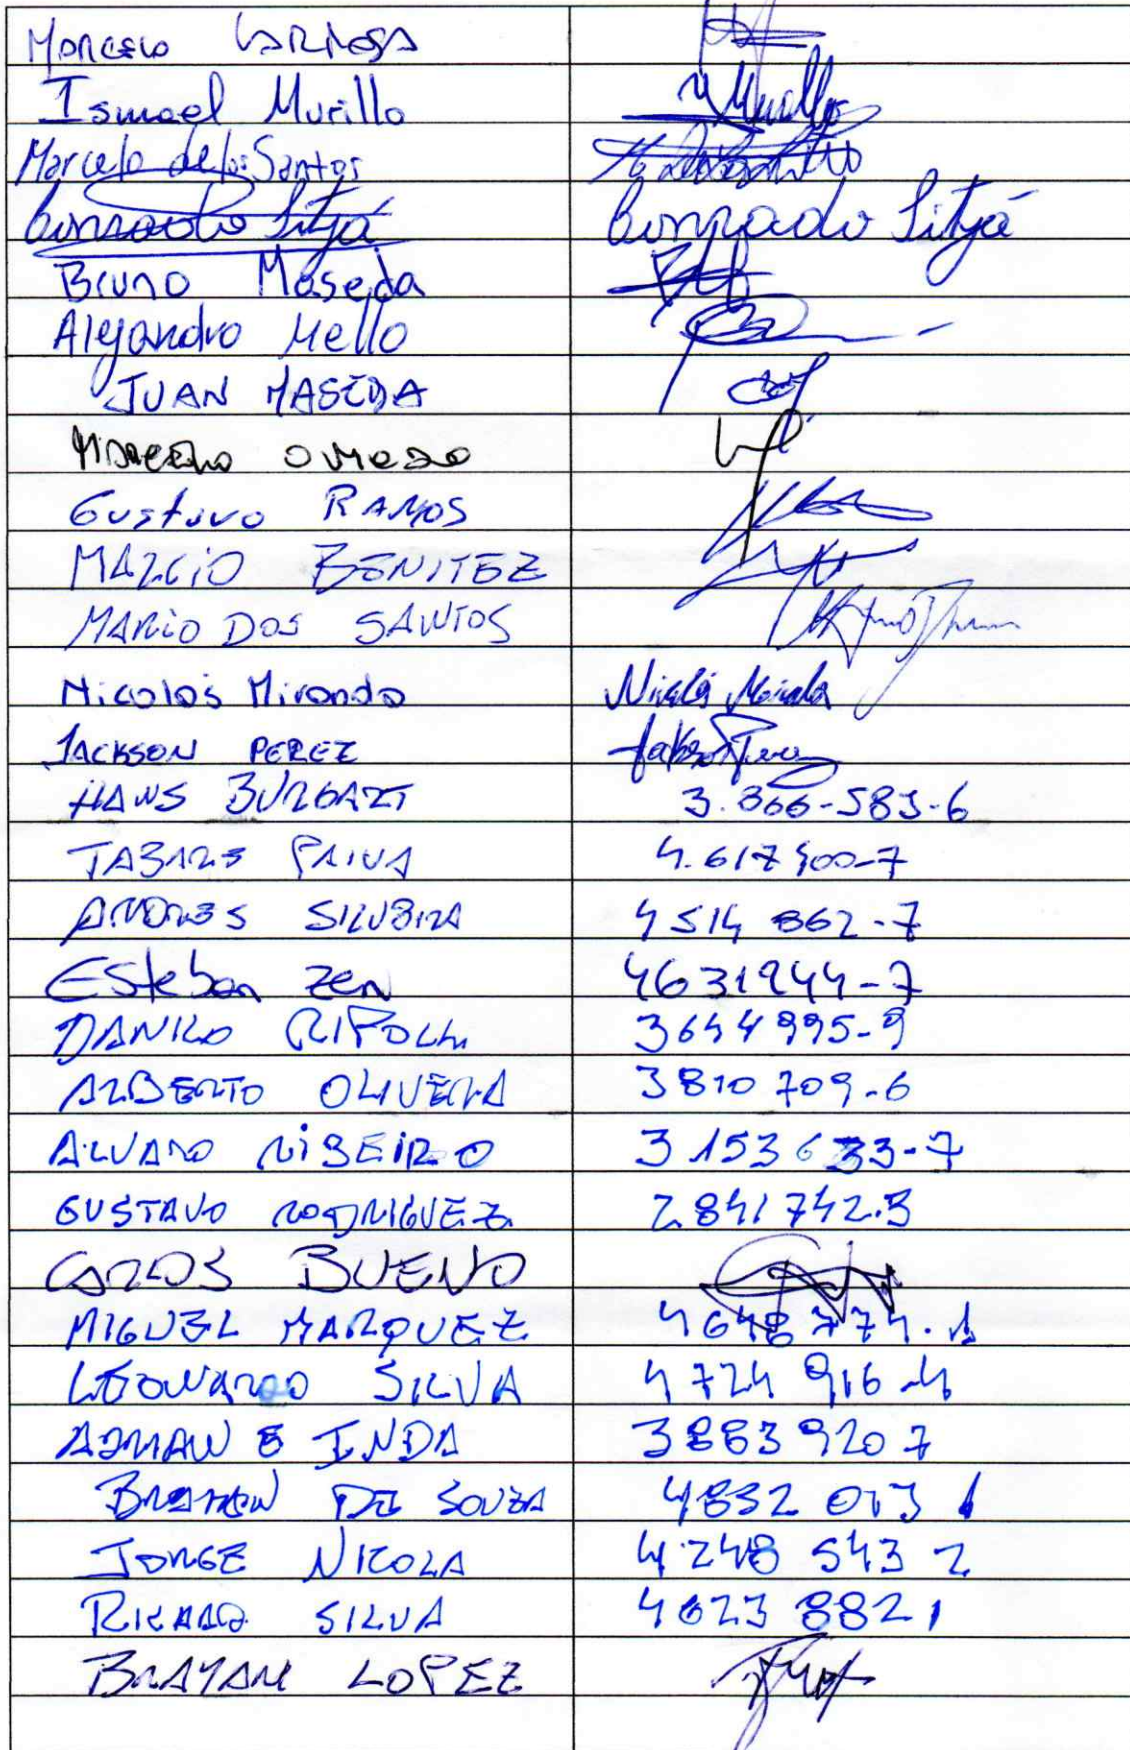 Marcelo Larrosa
Ismael Murillo
Marcelo de los Santos
Conrado Sitjá Conrado Sitjá
Bruno Maseda
Alejandro Mello
JUAN MASEDA
Marcelo
Gustavo RAMOS
MARCIO BENITEZ
MARIO DOS SANTOS
Nicolás Miranda
JACKSON PEREZ
HANS BURGART 3.866-583-6
TABARE PAIVA 4.617900-7
ANDRES SILVEIRA 4514 862-7
Esteban Zen 4631944-7
DANILO RIPOLL 3644995-9
ALBERTO OLIVERA 3810709-6
ALVARO RIBEIRO 3153633-7
GUSTAVO RODRIGUEZ 2841742.3
CARLOS BUENO
MIGUEL MARQUEZ 4648774.1
LEONARDO SILVA 4724 916-4
ADRIAN E INDA 3883920 7
DE SOUZA 4832 013 1
JORGE NICOLA 4.248 543 2
RICARDO SILVA 4623 882 1
BRAYAN LOPEZ